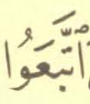 ٱتَّبَعُوا